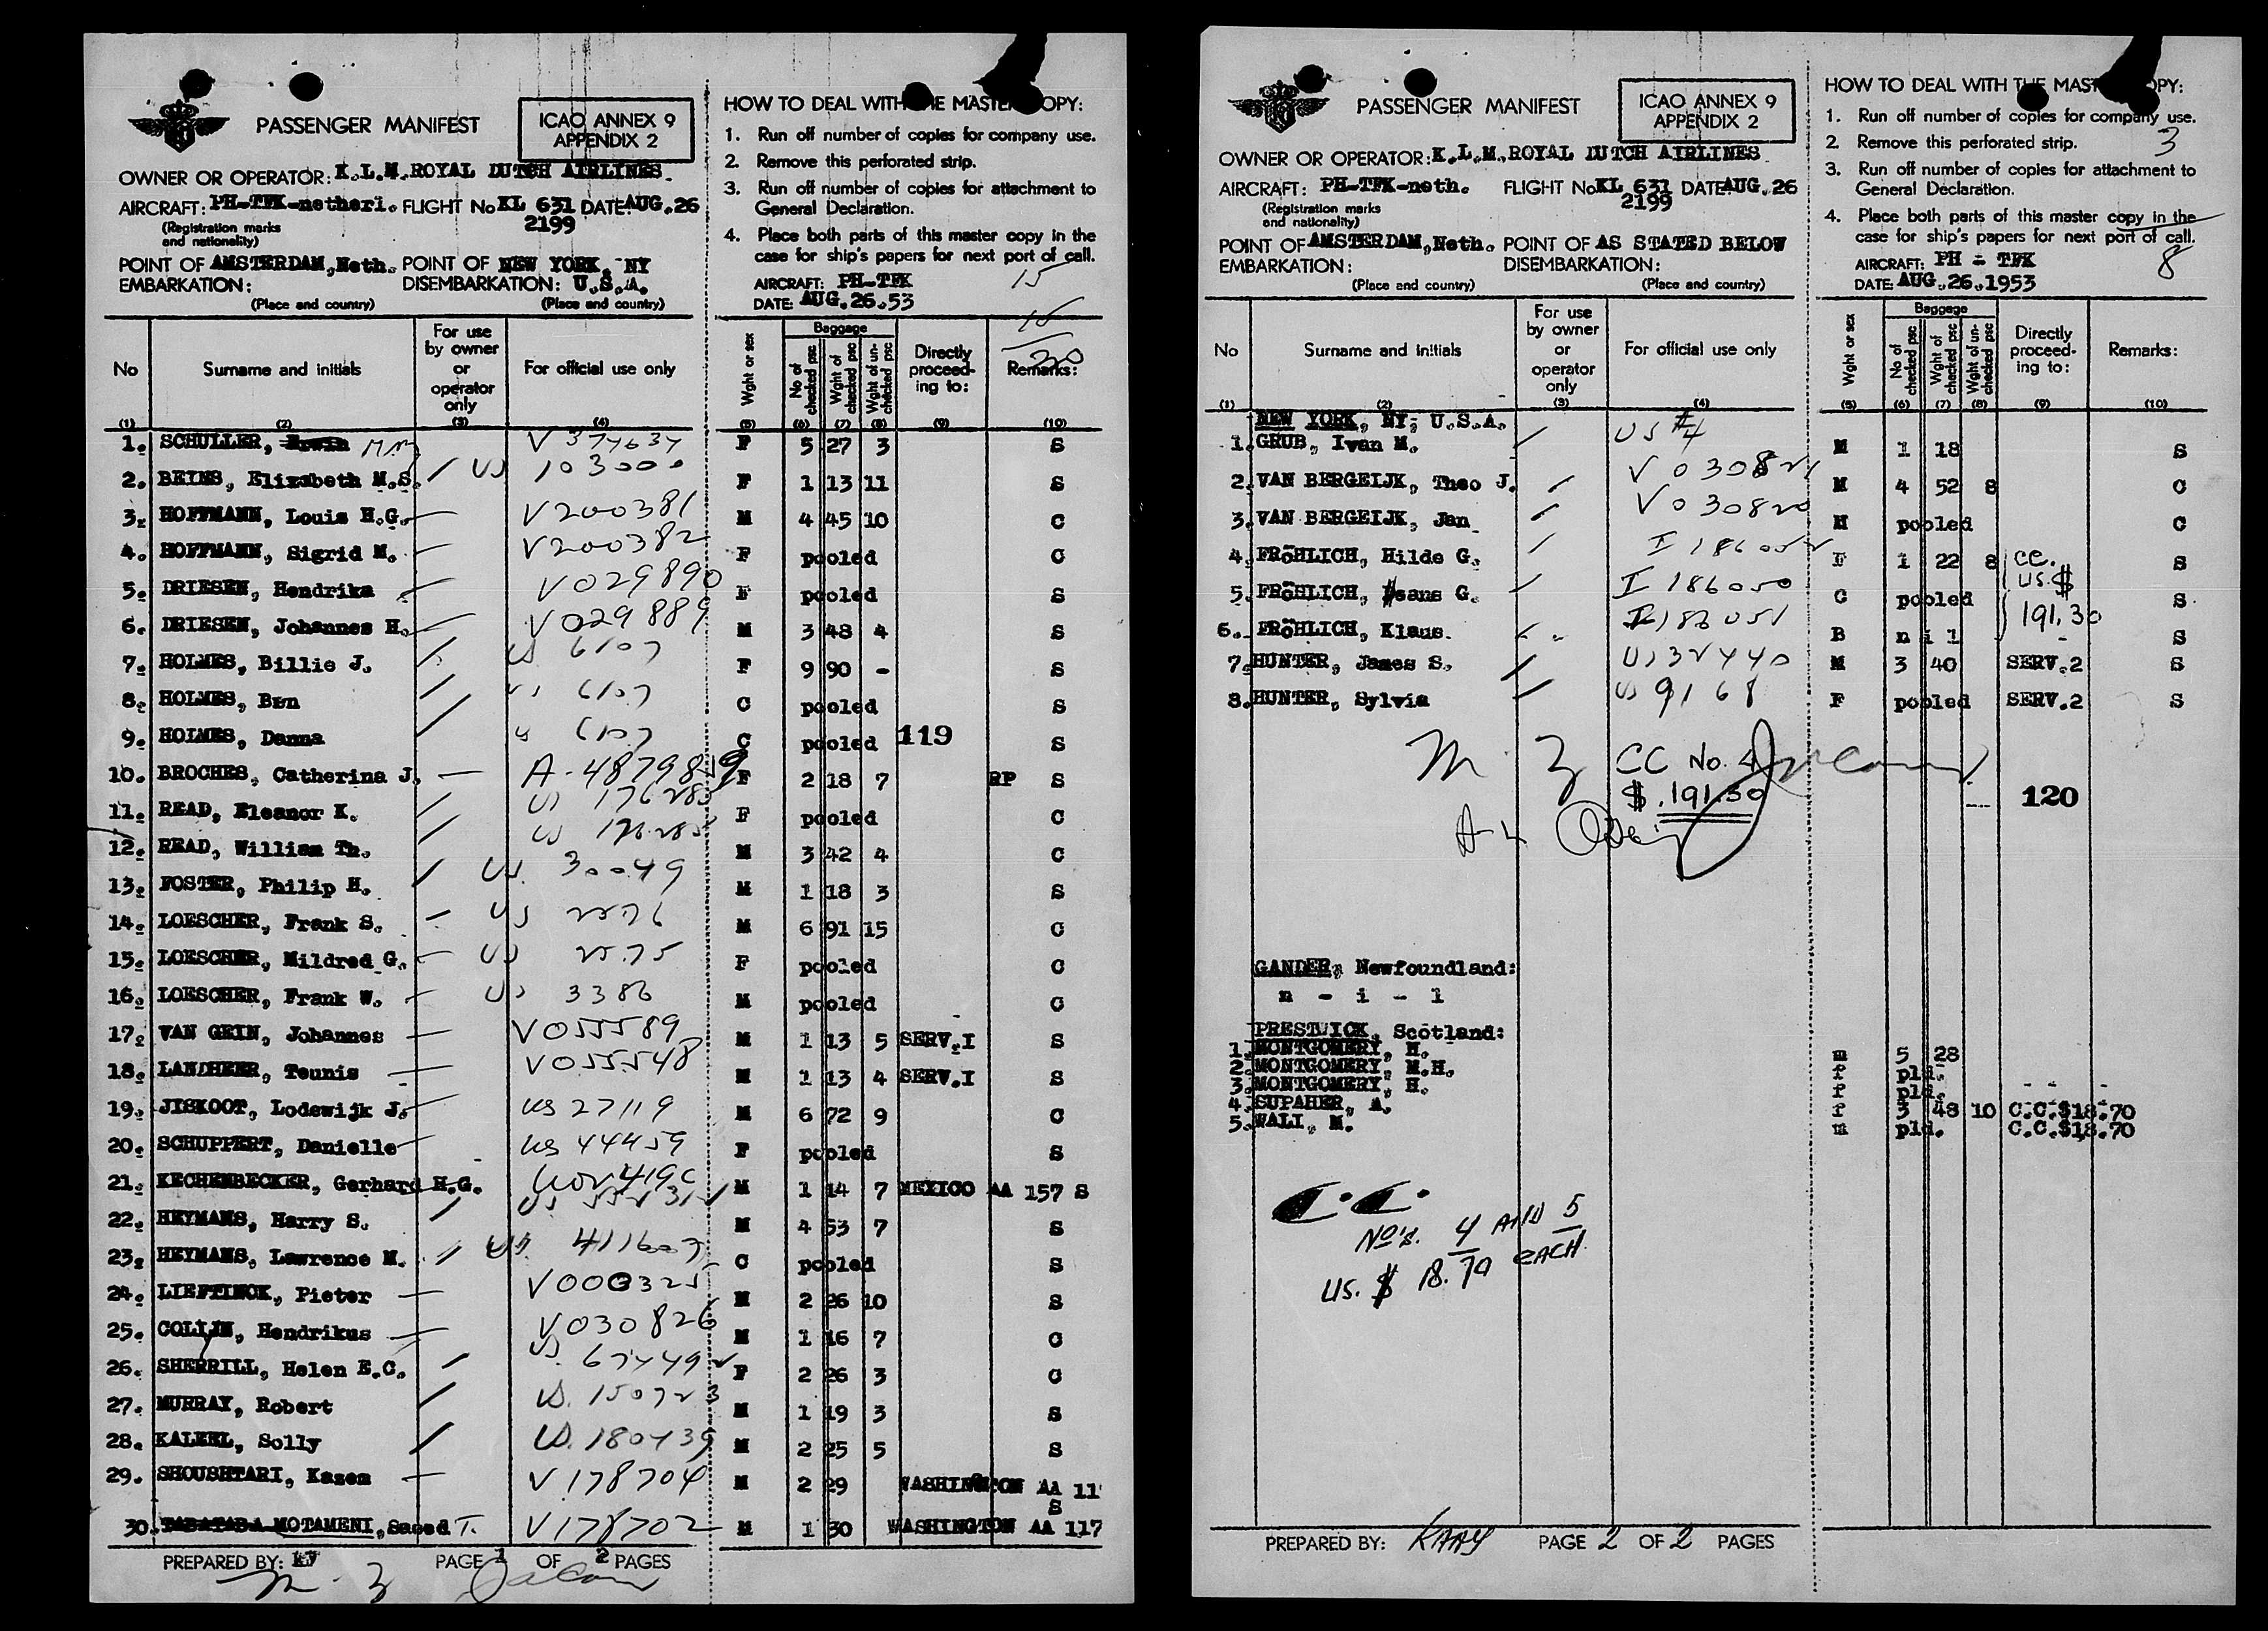 PASSENGER MANIFEST
ICAO ANNEX 9
APPENDIX 2
OWNER OR OPERATOR: K.L.M. ROYAL DUTCH AIRLINES.
AIRCRAFT: PH-TFK-netherl. FLIGHT No KL 631 DATE: AUG.26
2199
(Registration marks
and nationality)
POINT OF AMSTERDAM, Neth. POINT OF NEW YORK, NY
EMBARKATION: DISEMBARKATION: U.S.A.
(Place and country) (Place and country)
HOW TO DEAL WITH MASTER COPY:
1. Run off number of copies for company use.
2. Remove this perforated strip.
3. Run off number of copies for attachment to
General Declaration.
4. Place both parts of this master copy in the
case for ship's papers for next port of call.
AIRCRAFT: PH-TFK
DATE: AUG.26.53
15
No Surname and initials For use by owner or operator only For official use only Wght or sex Baggage No of checked psc Wght of checked psc Wght of un-checked psc Directly proceed-ing to: Remarks:
(1) (2) (3) (4) (5) (6) (7) (8) (9) (10)
1. SCHULLER, Erwin V 374634 F 5 27 3 S
2. BEINS, Elizabeth M.S. US 103000 F 1 13 11 S
3. HOFFMANN, Louis H.G. V200381 M 4 45 10 C
4. HOFFMANN, Sigrid M. V200382 F pooled C
5. DRIESEN, Hendrika V029890 F pooled S
6. DRIESEN, Johannes H. V029889 M 3 48 4 S
7. HOLMES, Billie J. US 6107 F 9 90 - S
8. HOLMES, Ben US 6107 C pooled S
9. HOLMES, Danna US 6107 C pooled 119 S
10. BROCHES, Catherina J. A-4879849 F 2 18 7 RP S
11. READ, Eleanor K. US 176285 F pooled C
12. READ, William Th. US 176285 M 3 42 4 C
13. FOSTER, Philip H. US 30049 M 1 18 3 S
14. LOESCHER, Frank S. US 2576 M 6 91 15 C
15. LOESCHER, Mildred G. US 2575 F pooled C
16. LOESCHER, Frank W. US 3386 M pooled C
17. VAN GEIN, Johannes V055589 M 1 13 5 SERV.I S
18. LANDHEER, Teunis V055548 M 1 13 4 SERV.I S
19. JISKOOT, Lodewijk J. US 27119 M 6 72 9 C
20. SCHUPPERT, Danielle US 44459 F pooled S
21. KECHENBECKER, Gerhard H.G. M 1 14 7 MEXICO AA 157 S
22. HEYMANS, Harry S. US M 4 53 7 S
23. HEYMANS, Lawrence M. US 411607 C pooled S
24. LIEFTINCK, Pieter V000325 M 2 26 10 S
25. COLLIN, Hendrikus V030826 M 1 16 7 C
26. SHERRILL, Helen E.C. US 67449 F 2 26 3 C
27. MURRAY, Robert US. 150723 M 1 19 3 S
28. KALEEL, Solly US. 180439 M 2 25 5 S
29. SHOUSHTARI, Kazem V 178704 M 2 29 WASHINGTON AA 11
S
30. TABATABA MOTAMENI, Saeed T. V178702 M 1 30 WASHINGTON AA 117
PREPARED BY: PAGE 1 OF 2 PAGES
PASSENGER MANIFEST
ICAO ANNEX 9
APPENDIX 2
OWNER OR OPERATOR: K.L.M. ROYAL DUTCH AIRLINES
AIRCRAFT: PH-TFK-neth. FLIGHT No KL 631 DATE AUG.26
2199
(Registration marks
and nationality)
POINT OF AMSTERDAM, Neth. POINT OF AS STATED BELOW
EMBARKATION: DISEMBARKATION:
(Place and country) (Place and country)
HOW TO DEAL WITH THE MASTER COPY:
1. Run off number of copies for company use.
2. Remove this perforated strip.
3
3. Run off number of copies for attachment to
General Declaration.
4. Place both parts of this master copy in the
case for ship's papers for next port of call.
AIRCRAFT: PH - TFK
8
DATE: AUG.26.1953
No Surname and initials For use by owner or operator only For official use only Wght or sex Baggage No of checked psc Wght of checked psc Wght of un-checked psc Directly proceed-ing to: Remarks:
(1) (2) (3) (4) (5) (6) (7) (8) (9) (10)
NEW YORK, NY, U.S.A.
1. GRUB, Iwan M. US #4 M 1 18 S
2. VAN BERGEIJK, Theo J. V 030821 M 4 52 8 C
3. VAN BERGEIJK, Jan V 030820 M pooled C
4. FRÖHLICH, Hilde G. I 186052 F 1 22 8 CC. S
US.$
5. FRÖHLICH, G. I 186050 C pooled S
191.30
6. FRÖHLICH, Klaus. I 186051 B n i l S
7. HUNTER, James S. US 32440 M 3 40 SERV.2 S
8. HUNTER, Sylvia US 9168 F pooled SERV.2 S
CC No. 4
$.191.30
120
GANDER, Newfoundland:
n - i - l
PRESTWICK, Scotland:
1. MONTGOMERY, H. m 5 28
2. MONTGOMERY, M.H. f pld.
3. MONTGOMERY, H. f pld.
4. SUPAHER, A. f 3 48 10 C.C.$18.70
5. WALI, M. m pld. C.C.$18.70
C.C.
No's. 4 AND 5
US. $ 18.70 EACH
PREPARED BY: KAAY PAGE 2 OF 2 PAGES